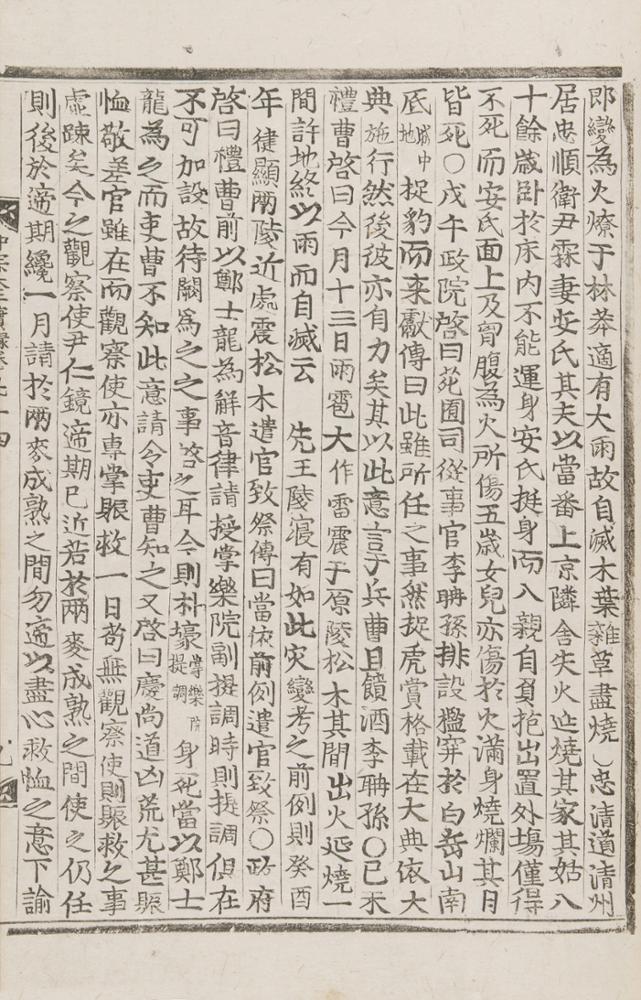 即變爲火燎于林莽適有大雨故自滅木葉雜草盡燒○忠清道清州
居忠順衛尹霖妻安氏其夫以當番上京隣舍失火延燒其家其姑八
十餘歲卧於床內不能運身安氏挺身而入親自負抱出置外場僅得
不死而安氏面上及胷腹爲火所傷五歲女兒亦傷於火滿身燒爛其月
皆死○戊午政院啓曰苑囿司從事官李聃孫排設檻穽於白岳山南
底城中地捉豹而來獻傳曰此雖所任之事然捉虎賞格載在大典依大
典施行然後彼亦自力矣其以此意言于兵曹且饋酒李聃孫○己未
禮曹啓曰今月十三日雨雹大作雷震于原陵松木其間出火延燒一
間許地終以雨而自滅云 先王陵寢有如此灾變考之前例則癸酉
年 健顯兩陵近處震松木遣官致祭傳曰當依前例遣官致祭○政府
啓曰禮曹前以鄭士龍爲解音律請授掌樂院副提調時則提調俱在
不可加設故待闕爲之之事 啓之耳今則朴壕掌樂院提調身死當以鄭士
龍爲之而吏曹不知此意請令吏曹知之又啓曰慶尚道凶荒尤甚賑
恤敬差官雖在而觀察使亦專掌賑救一日苟無觀察使則賑救之事
虛踈矣今之觀察使尹仁鏡適期已近若於兩麥成熟之間使之仍任
則後於適期纔一月請於兩麥成熟之間勿適以盡心救恤之意下諭
中宗大王實錄卷九十四
九